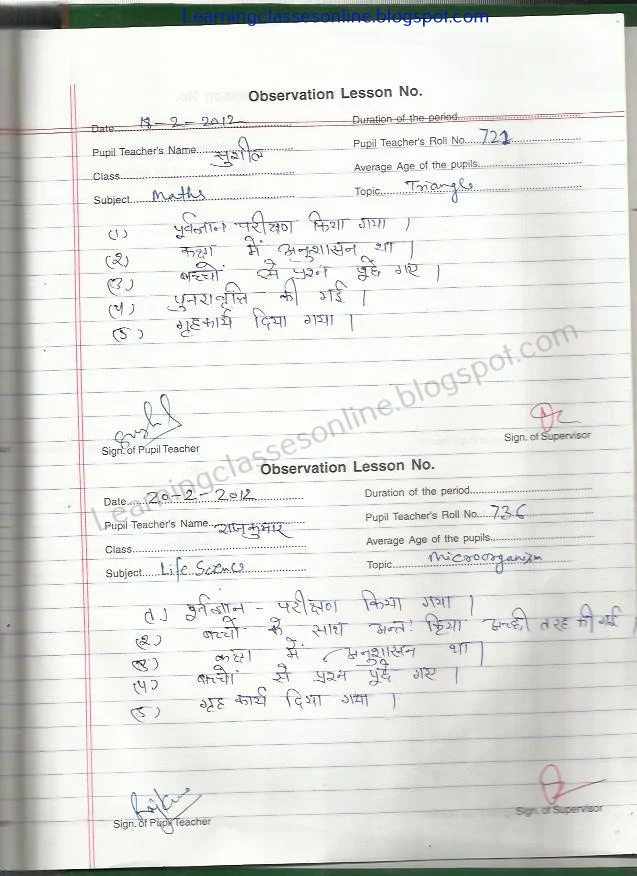 Learningclassesonline.blogspot.com
Observation Lesson No.
Date 18-2-2012 Duration of the period
Pupil Teacher's Name सुशील Pupil Teacher's Roll No. 721
Class Average Age of the pupils
Subject Maths Topic Triangle
(1) पूर्वज्ञान परीक्षण किया गया ।
(२) कक्षा में अनुशासन था ।
(३) बच्चों से प्रश्न पूछे गए ।
(४) पुनरावृत्ति की गई ।
(५) गृहकार्य दिया गया ।
Sign. of Pupil Teacher Sign. of Supervisor
Learningclassesonline.blogspot.com
Observation Lesson No.
Date 20-2-2012 Duration of the period
Pupil Teacher's Name राजकुमार Pupil Teacher's Roll No. 736
Class Average Age of the pupils
Subject Life Science Topic Microorganism
(1) पूर्वज्ञान - परीक्षण किया गया ।
(२) बच्चों के साथ अन्त: क्रिया अच्छी तरह की गई ।
(३) कक्षा में अनुशासन था ।
(४) बच्चों से प्रश्न पूछे गए ।
(५) गृह कार्य दिया गया ।
Sign. of Pupil Teacher Sign. of Supervisor